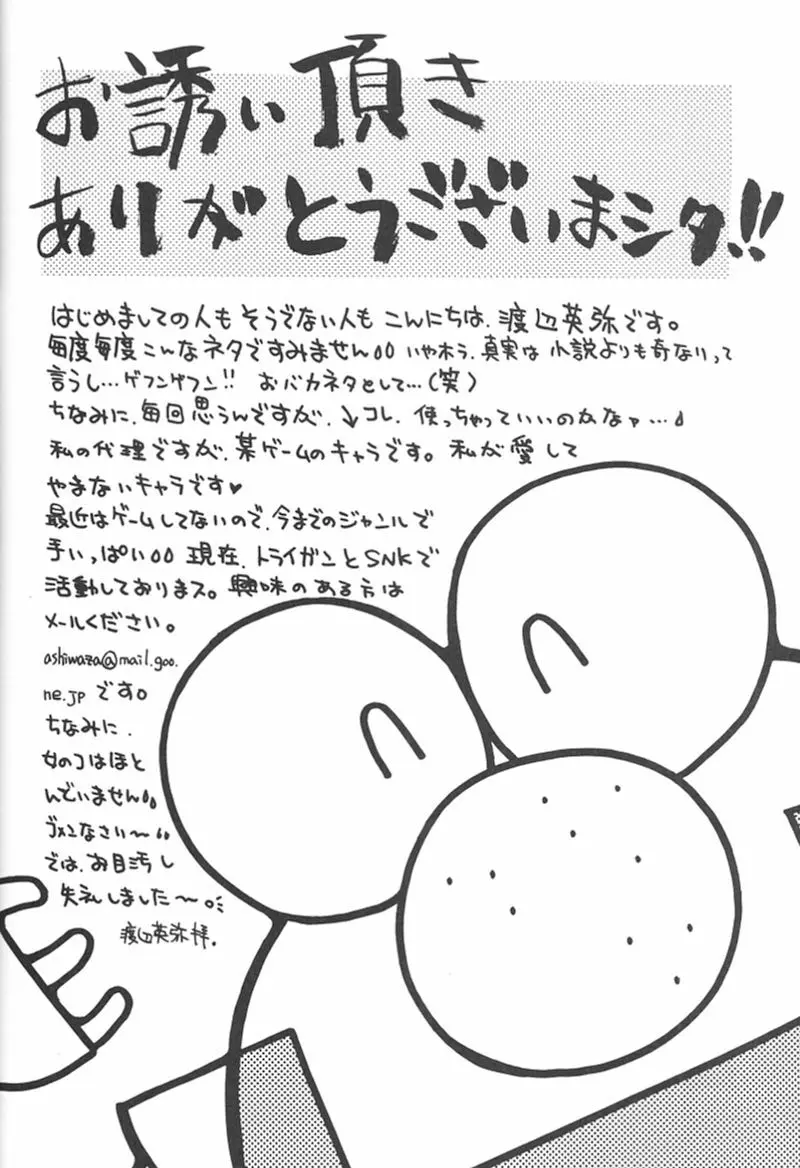 お誘い頂き
ありがとうございまシタ!!
はじめましての人もそうでない人もこんにちは、渡辺英弥です。
毎度毎度こんなネタですみません いやホラ、真実は小説よりも奇なりって
言うし…ゲフンゲフン!! おバカネタとして…(笑)
ちなみに、毎回思うんですが、↓コレ、使っちゃっていいのかなァ…
私の代理ですが、某ゲームのキャラです。私が愛して
やまないキャラです♥
最近はゲームしてないので、今までのジャンルで
手いっぱい 現在、トライガンとSNKで
活動しておりまス。興味のある方は
メールください。
ashiwaza@mail.goo.
ne.jp です。
ちなみに、
女のコはほと
んでいません
ゴメンなさい〜
では、お目汚し
失礼しました〜
渡辺英弥拝.